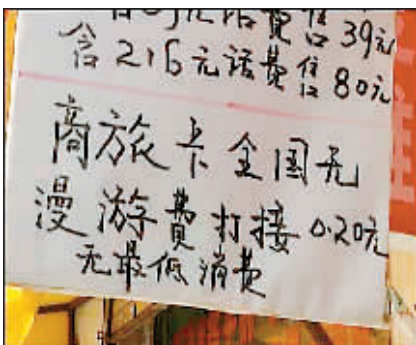 话费售39元
含216元话费售80元
商旅卡全国无
漫游费打接0.20元
无最低消费